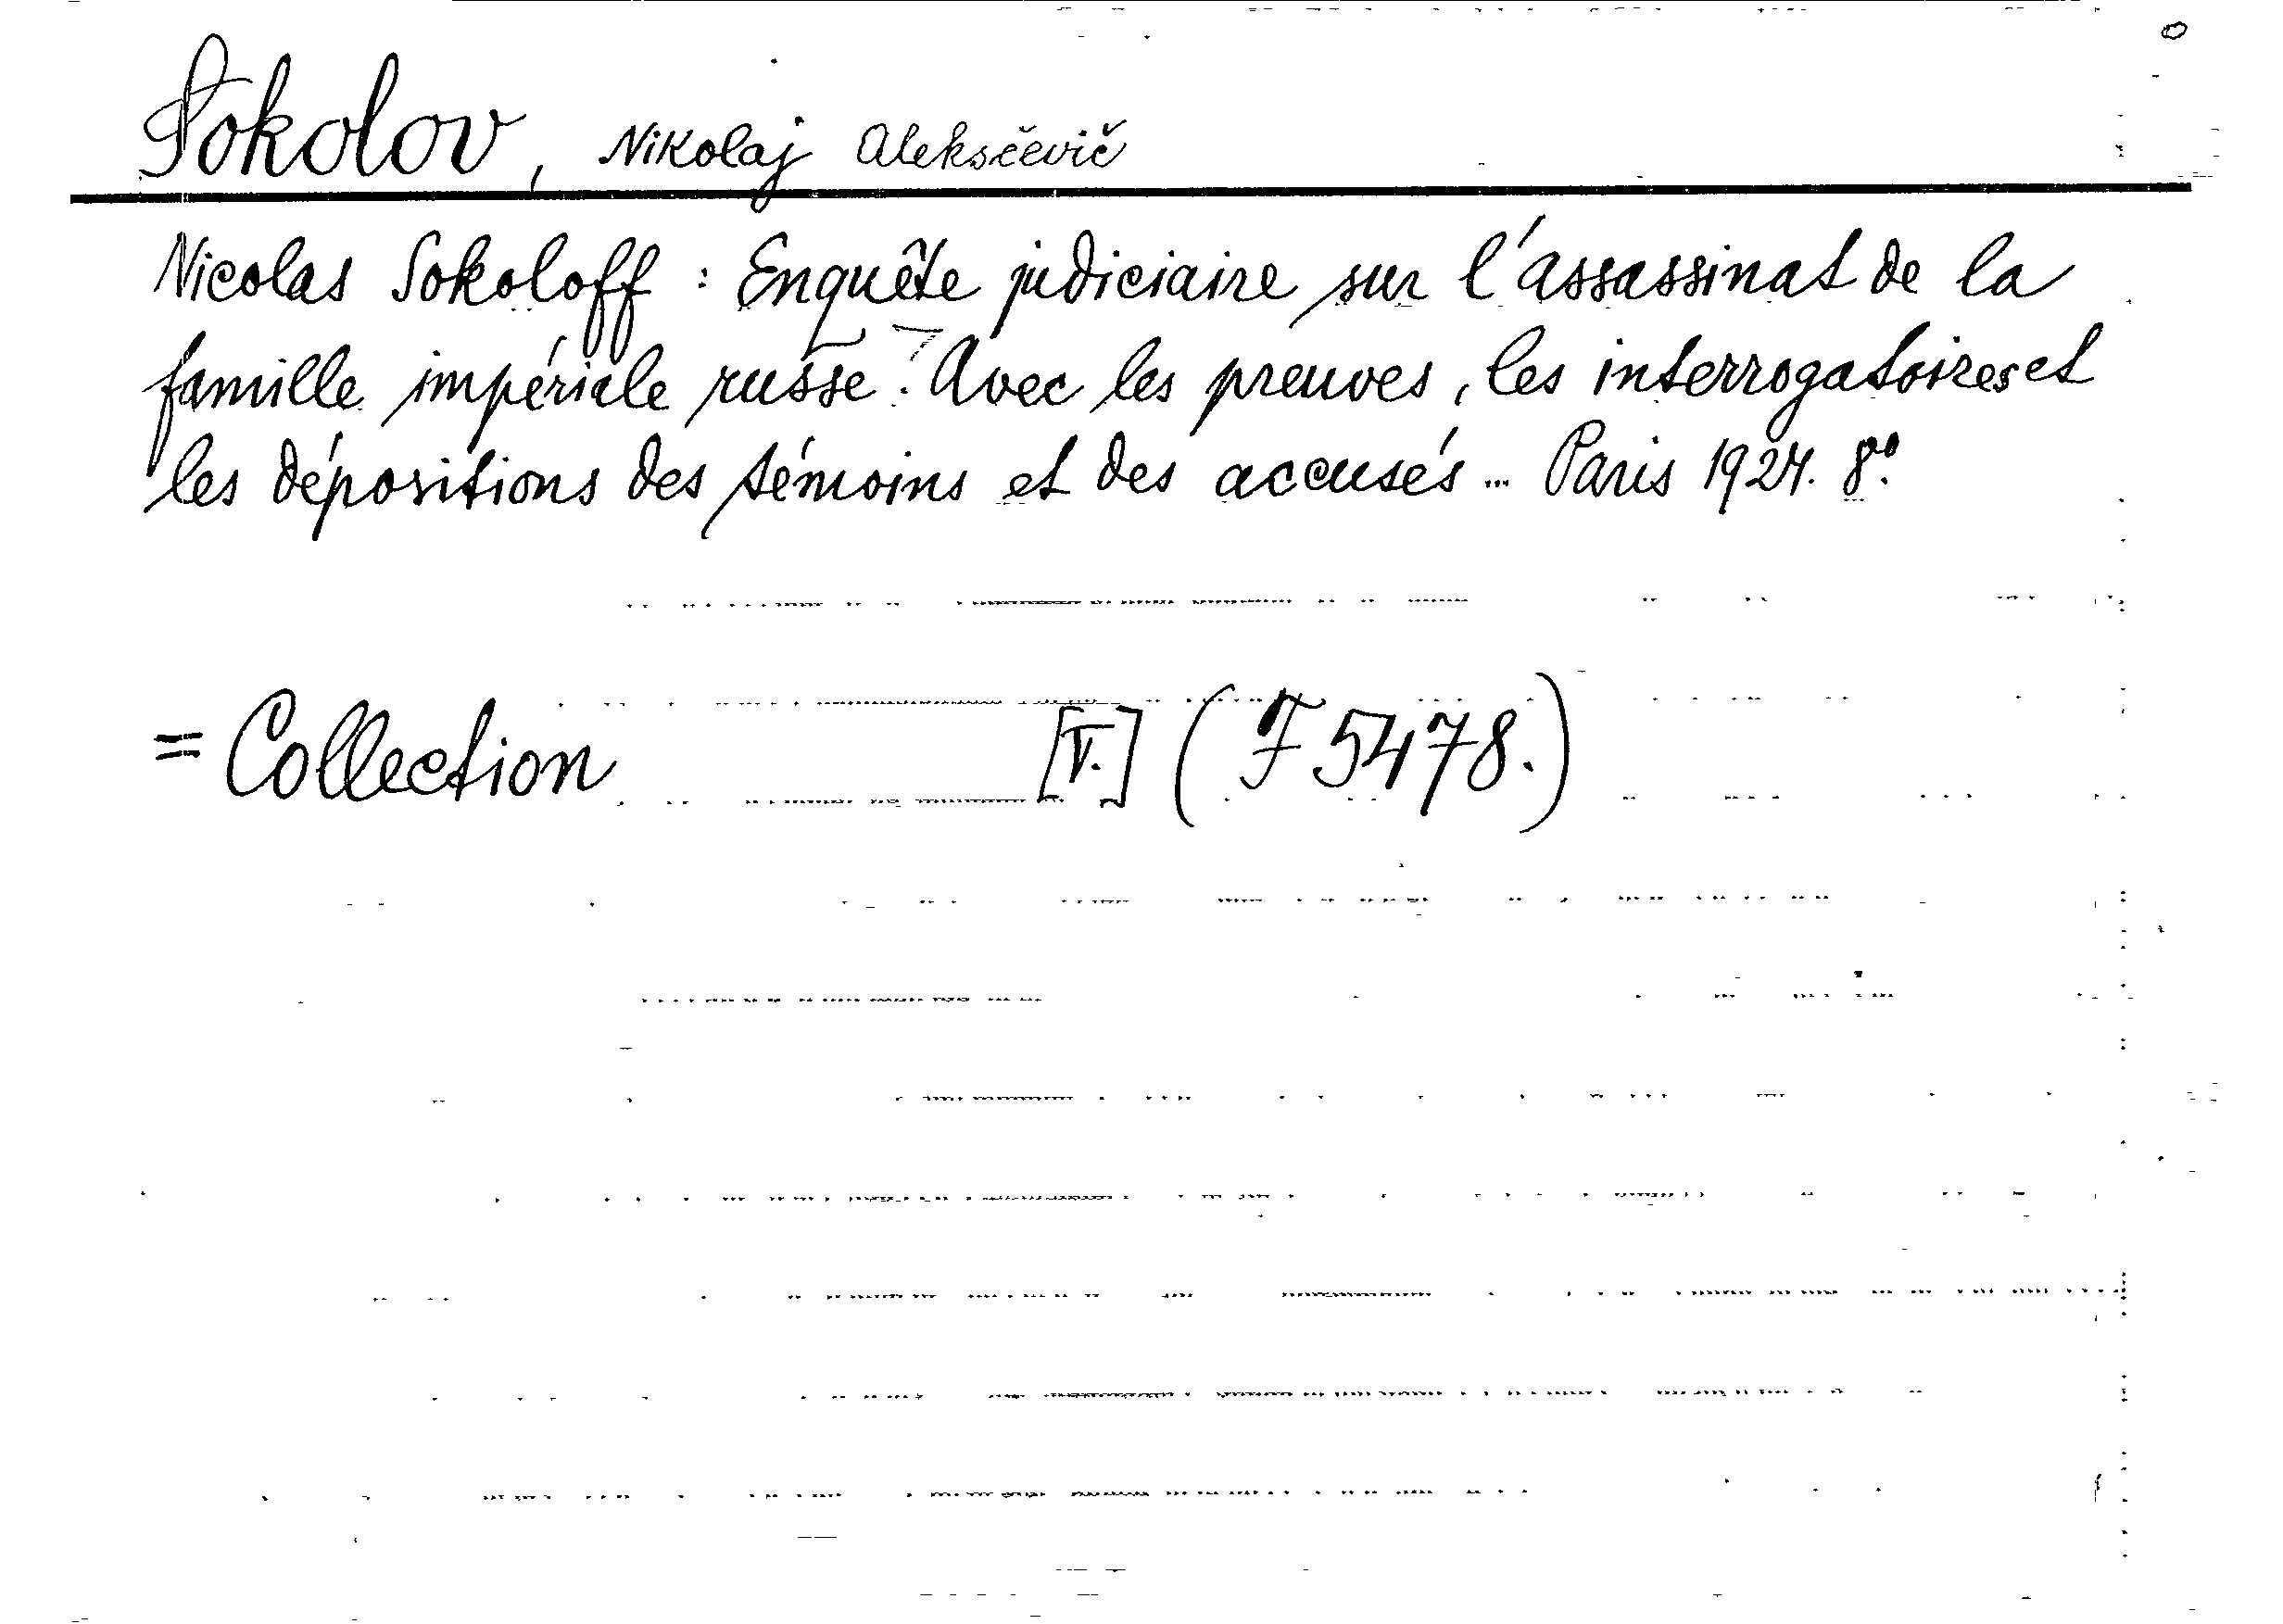 Sokolov, Nikolaj Aleksěevič
Nicolas Sokoloff : Enquête judiciaire sur l'assassinat de la
famille impériale russe. Avec les preuves, les interrogatoires et
les dépositions des témoins et des accusés ... Paris 1924. 8°.
= Collection [V.] (F 5478.)